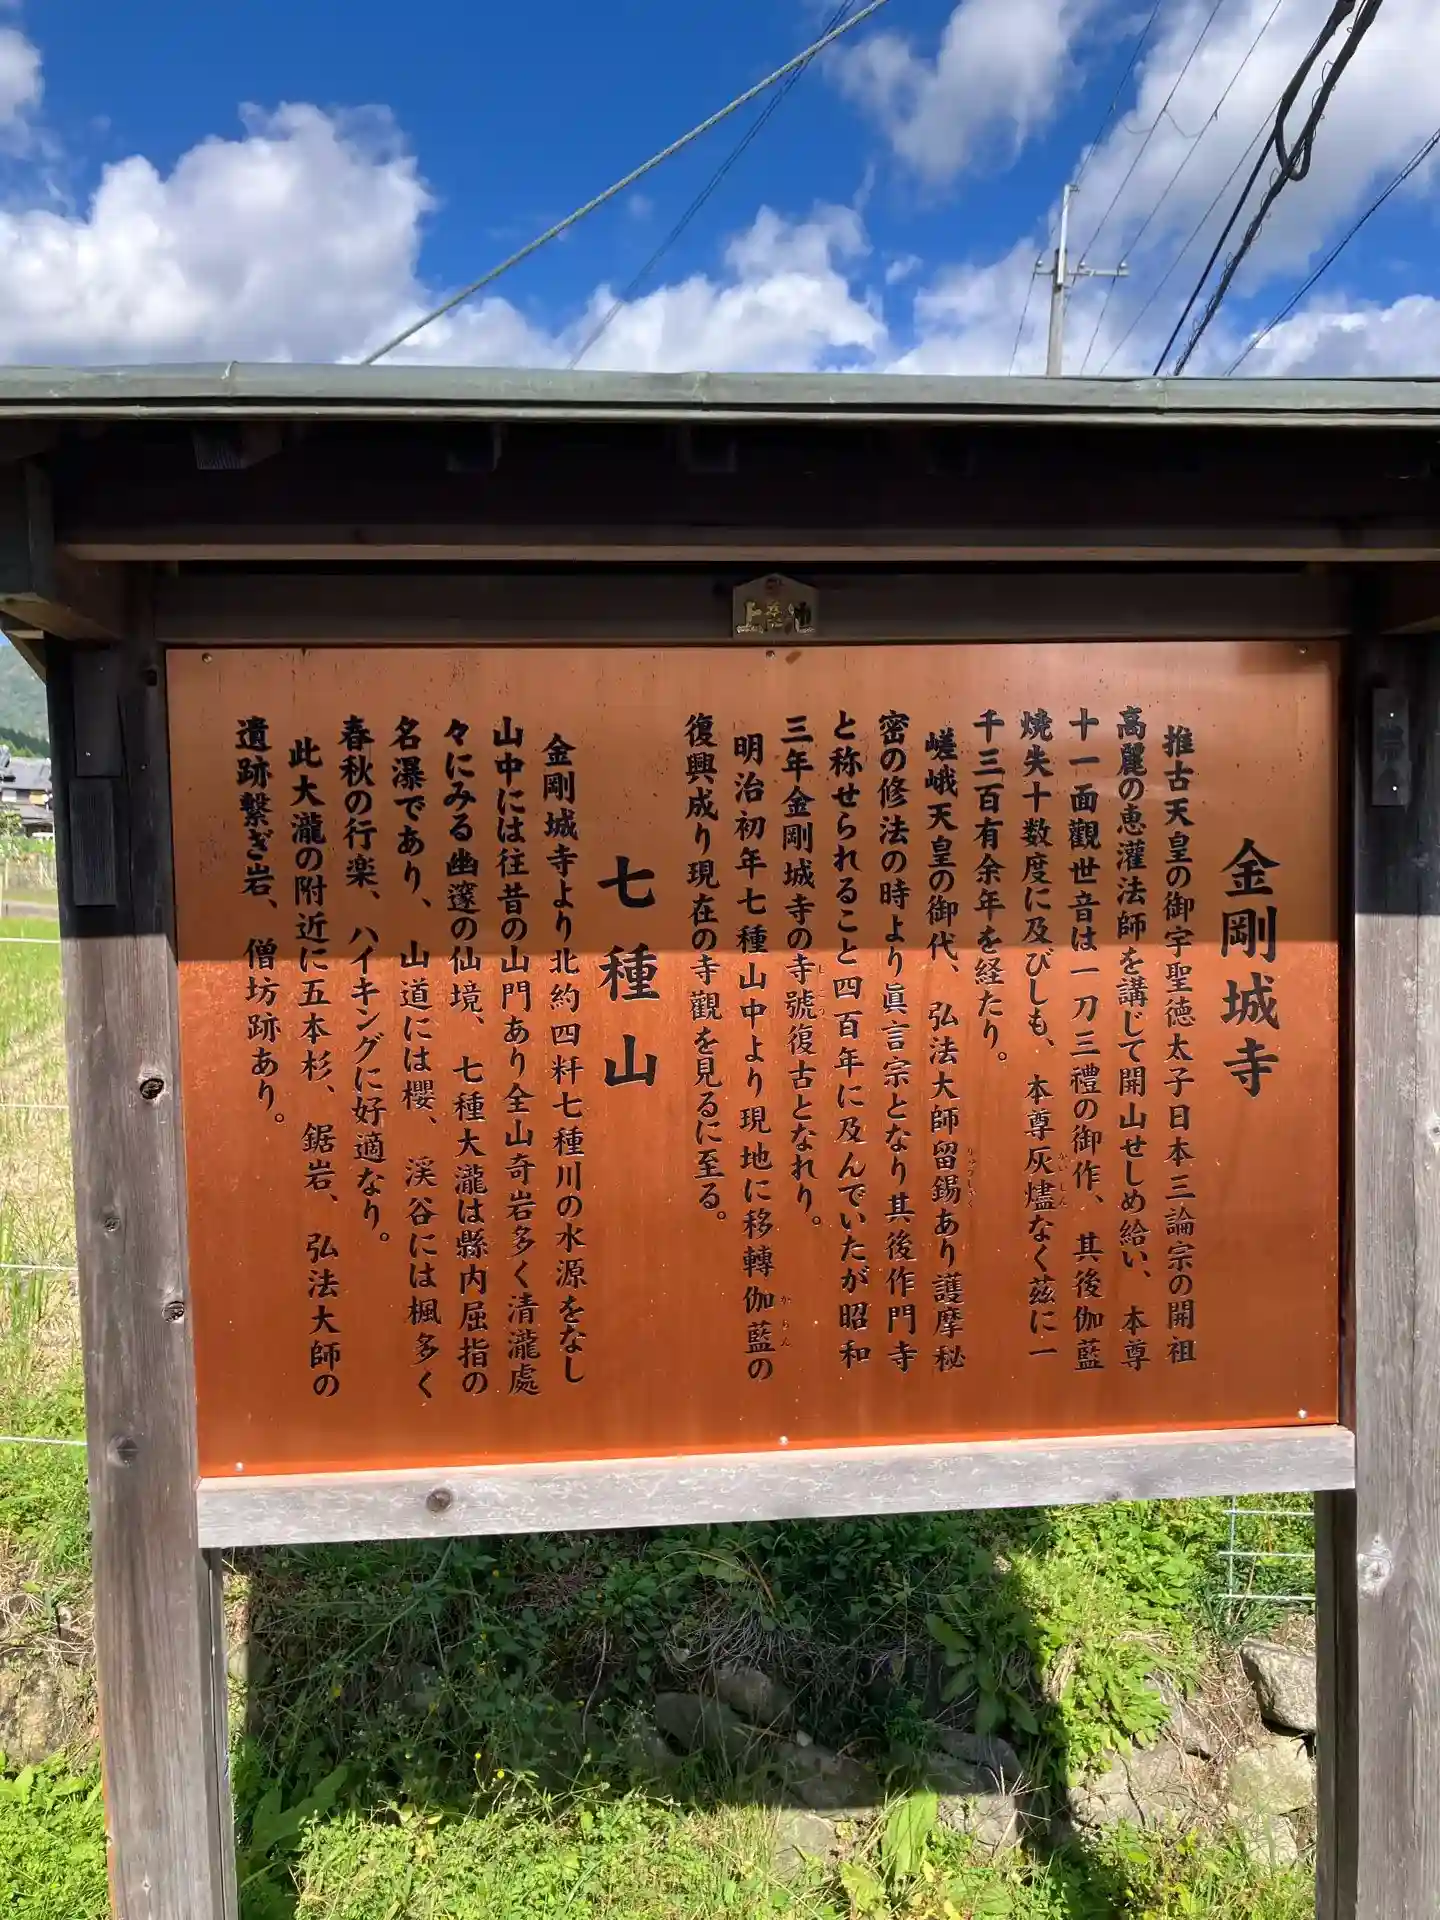 金剛城寺
推古天皇の御宇聖徳太子日本三論宗の開祖
高麗の恵灌法師を講じて開山せしめ給い、本尊
十一面觀世音は一刀三禮の御作、其後伽藍
焼失十数度に及びしも、本尊灰燼なく茲に一
かいじん
千三百有余年を経たり。
嵯峨天皇の御代、弘法大師留錫あり護摩秘
りゅうしゃく
密の修法の時より眞言宗となり其後作門寺
と称せられること四百年に及んでいたが昭和
三年金剛城寺の寺號復古となれり。
明治初年七種山中より現地に移轉伽藍の
がらん
復興成り現在の寺觀を見るに至る。
七種山
金剛城寺より北約四粁七種川の水源をなし
山中には往昔の山門あり全山奇岩多く清瀧處
々にみる幽邃の仙境、七種大瀧は縣内屈指の
名瀑であり、山道には櫻、渓谷には楓多く
春秋の行楽、ハイキングに好適なり。
此大瀧の附近に五本杉、鋸岩、弘法大師の
遺跡繋ぎ岩、僧坊跡あり。